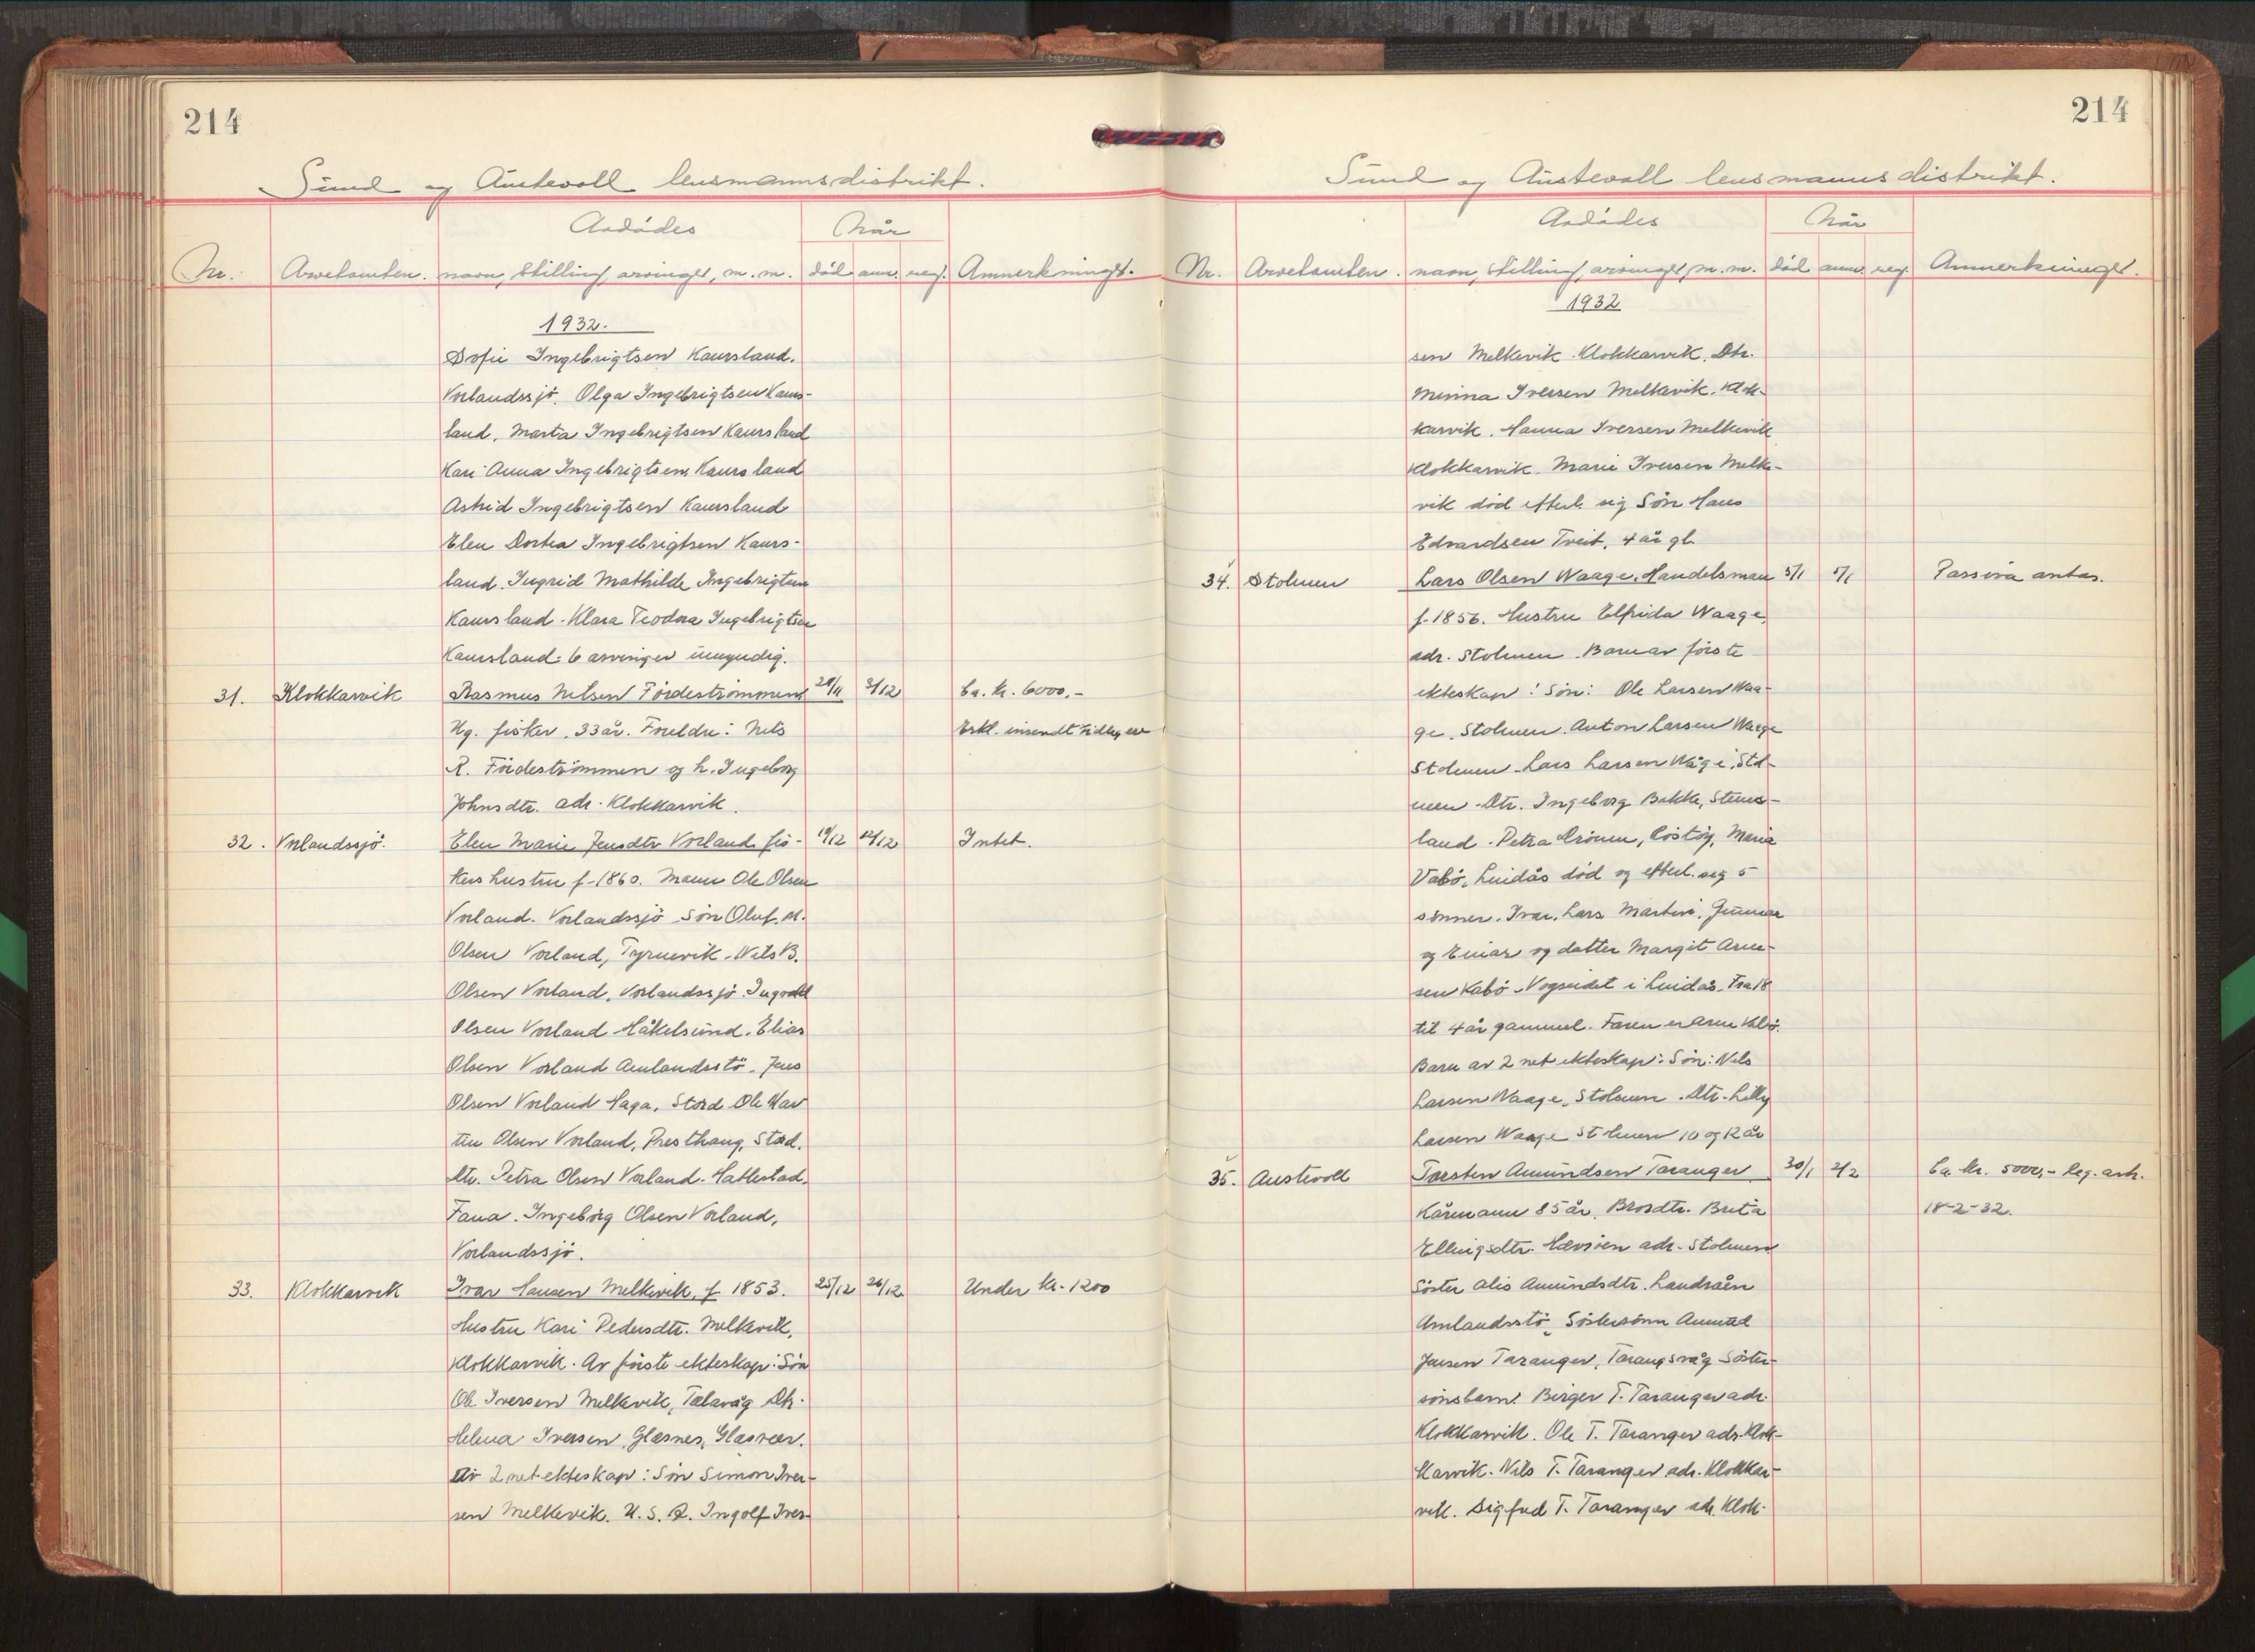 214
Sund og Austevoll lensmannsdistrikt.
Avdødes
Når
Nr. Arvetomten. navn, stilling, arvinger, m. m. død anm. reg. Anmerkninger.
1932.
Sofie Ingebrigtsen Kaursland.
Vorlandssjö. Olga Ingebrigtsen Kaurs-
land. Marta Ingebrigtsen Kaursland
Kari Anna Ingebrigtsen Kaursland
Astrid Ingebrigtsen Kaursland
Elen Dortea Ingebrigtsen Kaurs-
land. Ingrid Mathilde Ingebrigtsen
Kaursland. Klara Teodora Ingebrigtsen
Kaursland. 6 arvinger umyndig.
31. Klokkarvik Rasmus Nilsen Fördeströmmen 3/12 Ca. kr. 6000.-
Ug. fisker. 33 år. Foreldre: Nils Erkl. innsendt tidligere
R. Fördeströmmen og h. Ingeborg
Johnsdtr. adr. Klokkarvik.
32. Vorlandssjö. Elen Marie Jensdtr Vorland fis- 10/12 12/12 Intet.
kers hustru f. 1860. Mann Ole Olsen
Vorland. Vorlandssjö Sön Oluf. M.
Olsen Vorland, Tyrnevik. Nils B.
Olsen Vorland, Vorlandssjö. Ingvald
Olsen Vorland Håkelsund. Elias
Olsen Vorland Amlandsstö. Jens
Olsen Vorland Haga, Stord Ole Mar
tin Olsen Vorland, Presthaug, Stord.
Dtr. Petra Olsen Vorland. Hatlestad.
Fana. Ingeborg Olsen Vorland,
Vorlandssjö.
33. Klokkarvik Ivar Hansen Melkevik, f. 1853. 25/12 26/12 Under kr. 1200
Hustru Kari Pedersdtr. Melkevik,
Klokkarvik. Av förste ekteskap: Sön
Ole Iversen Melkevik, Telavåg Dtr.
Helena Iversen, Glesnes, Glesvær.
Av 2 net ekteskap: Sön Simon Iver-
sen Melkevik. U. S. A. Ingolf Iver-
214
Sund og Austevoll lensmannsdistrikt.
Avdødes
Når
Nr. Arvetomten. navn, stilling, arvinger, m. m. død anm. reg. Anmerkninger.
1932
sen Melkevik. Klokkarvik. Dtr.
Minna Iversen Melkevik. Klok-
karvik. Hanna Iversen Melkevik
Klokkarvik. Marie Iversen Melke-
vik död efterl. sig Sön Hans
Edvardsen Tveit, 4 år gl.
34. Stolmen Lars Olsen Waage, Handelsman 5/1 Passiva antas.
f. 1856. Hustru Elfrida Waage,
adr. Stolmen. Barn av förste
ekteskap: Sön: Ole Larsen Waa-
ge, Stolmen. Anton Larsen Waage
Stolmen. Lars Larsen Våge, Stol-
men. Dtr. Ingeborg Bakke,
land. Petra Drönen, Maria
Vabö, Lindås död og efterl. seg 5
sönner. Ivar, Lars Martin, Gunnar
og Einar og datter Margit Arne-
sen i Lindås. Fra 18
til 4 år gammel. Faren er Arne
Barn av 2 net ekteskap: Sön: Nils
Larsen Waage, Stolmen. Dtr. Lilly
Larsen Waage Stolmen 10 og 12 år
35. Austevoll Torsten Amundsen Taranger 30/1 2/2 Ca. kr. 5000,- leg. ark.
Kårmann 85 år. Brordtr. Brita 18-2-32.
Ellingsdtr. adr. Stolmen
Söster Alis Amundsdtr. Landraaen
Amlandsstö, Söstersönn Amund
Jensen Taranger, Tarangsvåg Söster-
sönsbarn: Birger T. Taranger adr.
Klokkarvik. Ole T. Taranger adr. Klok-
karvik. Nils T. Taranger adr. Klokkar-
vik. Sigfred T. Taranger adr. Klok-